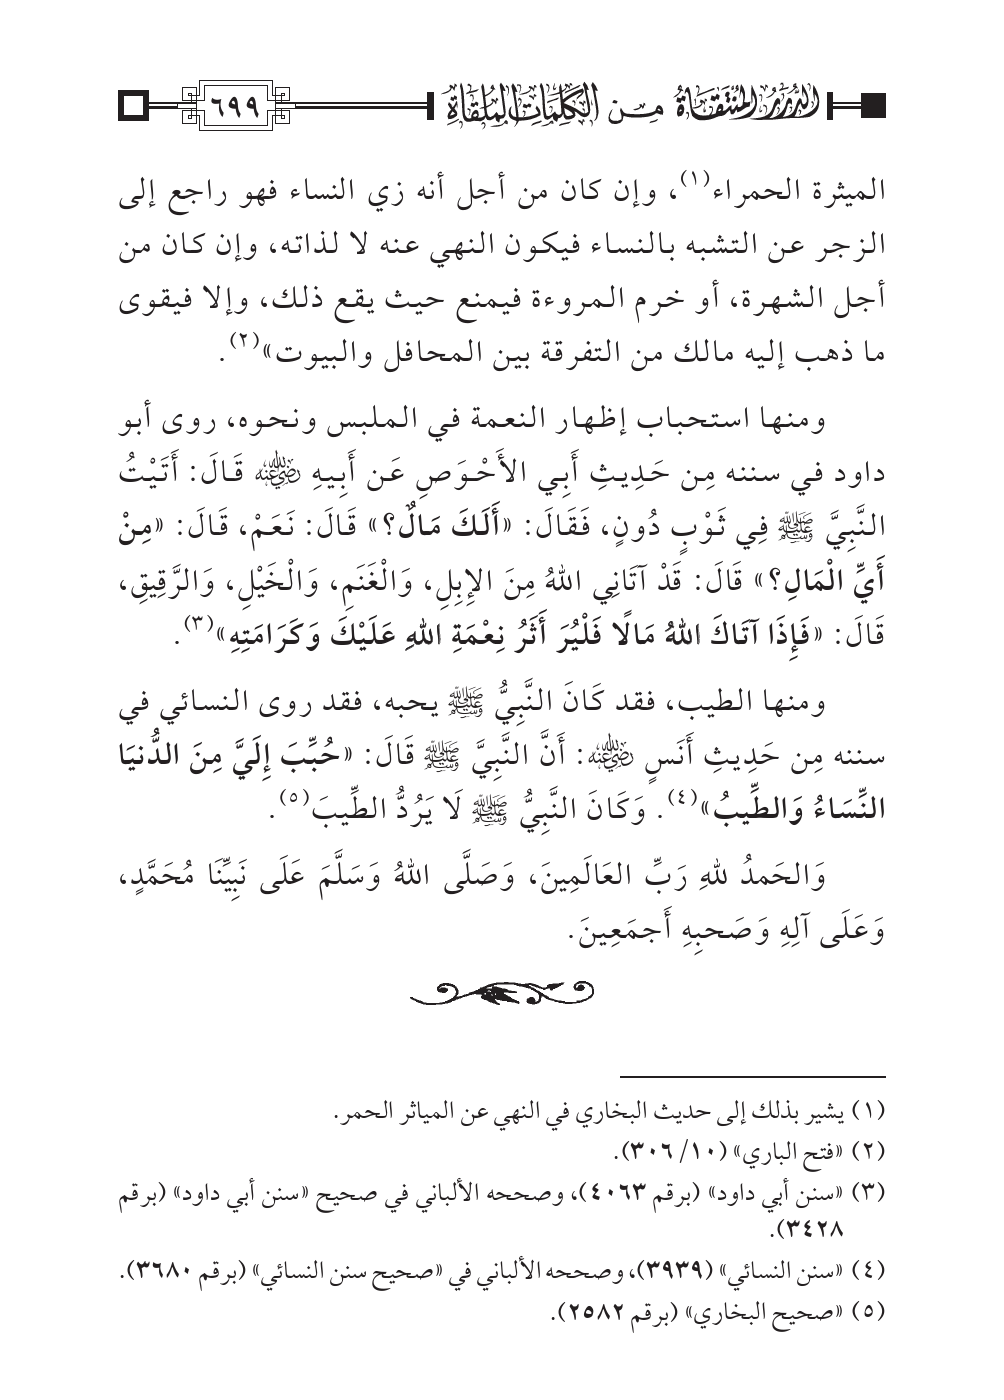 الدُّرَرُ المُنْتَقَاةُ مِـن الكَلِمَاتِ المُلْقَاةِ
٦٩٩
الميثرة الحمراء(١)، وإن كان من أجل أنه زي النساء فهو راجع إلى
الزجر عن التشبه بالنساء فيكون النهي عنه لا لذاته، وإن كان من
أجل الشهرة، أو خرم المروءة فيمنع حيث يقع ذلك، وإلا فيقوى
ما ذهب إليه مالك من التفرقة بين المحافل والبيوت»(٢).
ومنها استحباب إظهار النعمة في الملبس ونحوه، روى أبو
داود في سننه مِن حَدِيثِ أَبِي الأَحْوَصِ عَن أَبِيهِ رضي الله عنه قَالَ: أَتَيْتُ
النَّبِيَّ ﷺ فِي ثَوْبٍ دُونٍ، فَقَالَ: «أَلَكَ مَالٌ؟» قَالَ: نَعَمْ، قَالَ: «مِنْ
أَيِّ الْمَالِ؟» قَالَ: قَدْ آتَانِي اللهُ مِنَ الإِبِلِ، وَالْغَنَمِ، وَالْخَيْلِ، وَالرَّقِيقِ،
قَالَ: «فَإِذَا آتَاكَ اللهُ مَالًا فَلْيُرَ أَثَرُ نِعْمَةِ اللهِ عَلَيْكَ وَكَرَامَتِهِ»(٣).
ومنها الطيب، فقد كَانَ النَّبِيُّ ﷺ يحبه، فقد روى النسائي في
سننه مِن حَدِيثِ أَنَسٍ رضي الله عنه: أَنَّ النَّبِيَّ ﷺ قَالَ: «حُبِّبَ إِلَيَّ مِنَ الدُّنيَا
النِّسَاءُ وَالطِّيبُ»(٤). وَكَانَ النَّبِيُّ ﷺ لَا يَرُدُّ الطِّيبَ(٥).
وَالحَمدُ للهِ رَبِّ العَالَمِينَ، وَصَلَّى اللهُ وَسَلَّمَ عَلَى نَبِيِّنَا مُحَمَّدٍ،
وَعَلَى آلِهِ وَصَحبِهِ أَجمَعِينَ.
(١) يشير بذلك إلى حديث البخاري في النهي عن المياثر الحمر.
(٢) «فتح الباري» (١٠/ ٣٠٦).
(٣) «سنن أبي داود» (برقم ٤٠٦٣)، وصححه الألباني في صحيح «سنن أبي داود» (برقم
٣٤٢٨).
(٤) «سنن النسائي» (٣٩٣٩)، وصححه الألباني في «صحيح سنن النسائي» (برقم ٣٦٨٠).
(٥) «صحيح البخاري» (برقم ٢٥٨٢).